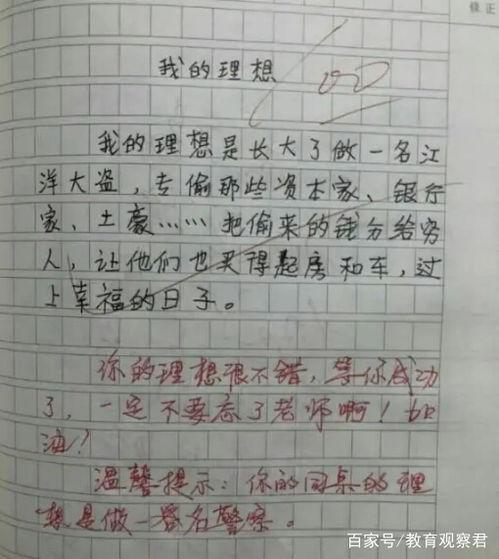 修正
我的理想
100
我的理想是长大了做一名江
洋大盗，专偷那些资本家、银行
家、土豪……把偷来的钱分给穷
人，让他们也买得起房和车，过
上幸福的日子。
你的理想很不错，等你成功
了，一定不要忘了老师啊！加
油！
温馨提示：你的同桌的理
想是做一名警察。
百家号/教育观察君